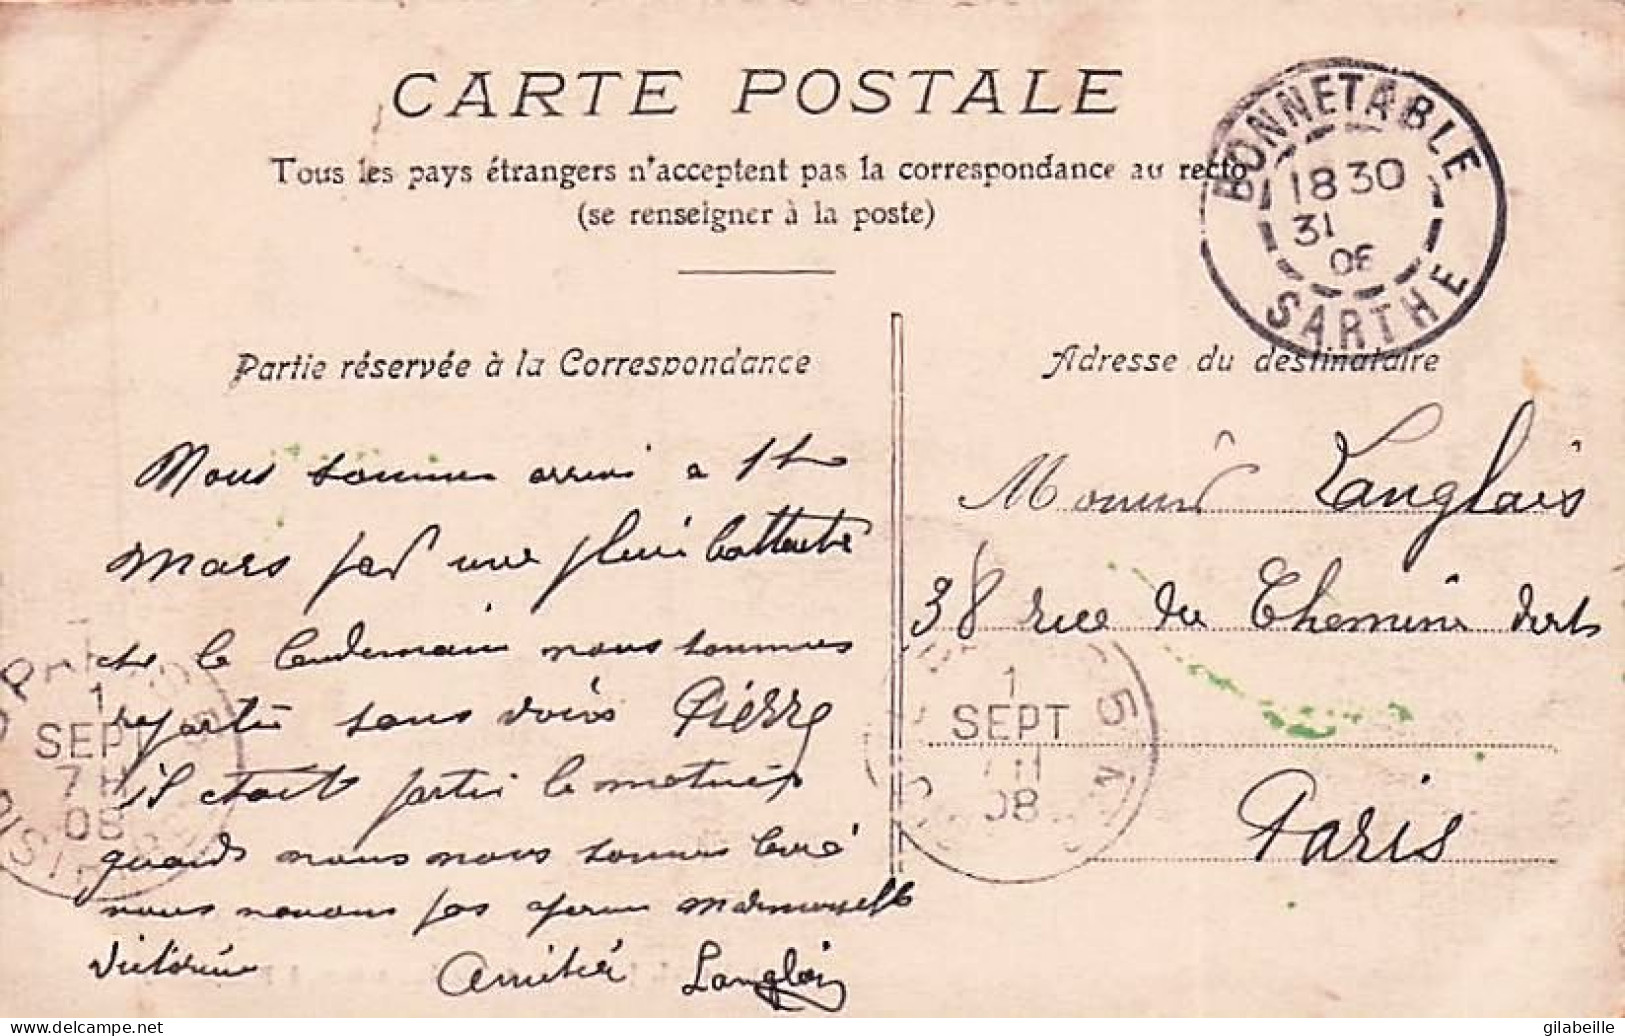 CARTE POSTALE
Tous les pays étrangers n'acceptent pas la correspondance au recto
(se renseigner à la poste)
BONNETABLE
18 30
31
08
SARTHE
Partie réservée à la Correspondance
Nous sommes arrivé a 1h
mars par une pluie battante
et le lendemain nous sommes
repartie sans voire Pierre
il etait partie le matin
quand nous nous sommes levé
nous navons pas aperçu mademoiselle
Victorine Amitié Langlois
Adresse du destinataire
Langlais
38 rue du Chemin vert
Paris
1
SEPT
7H
08
1
SEPT
7H
08
delcampe.net
gilabeille